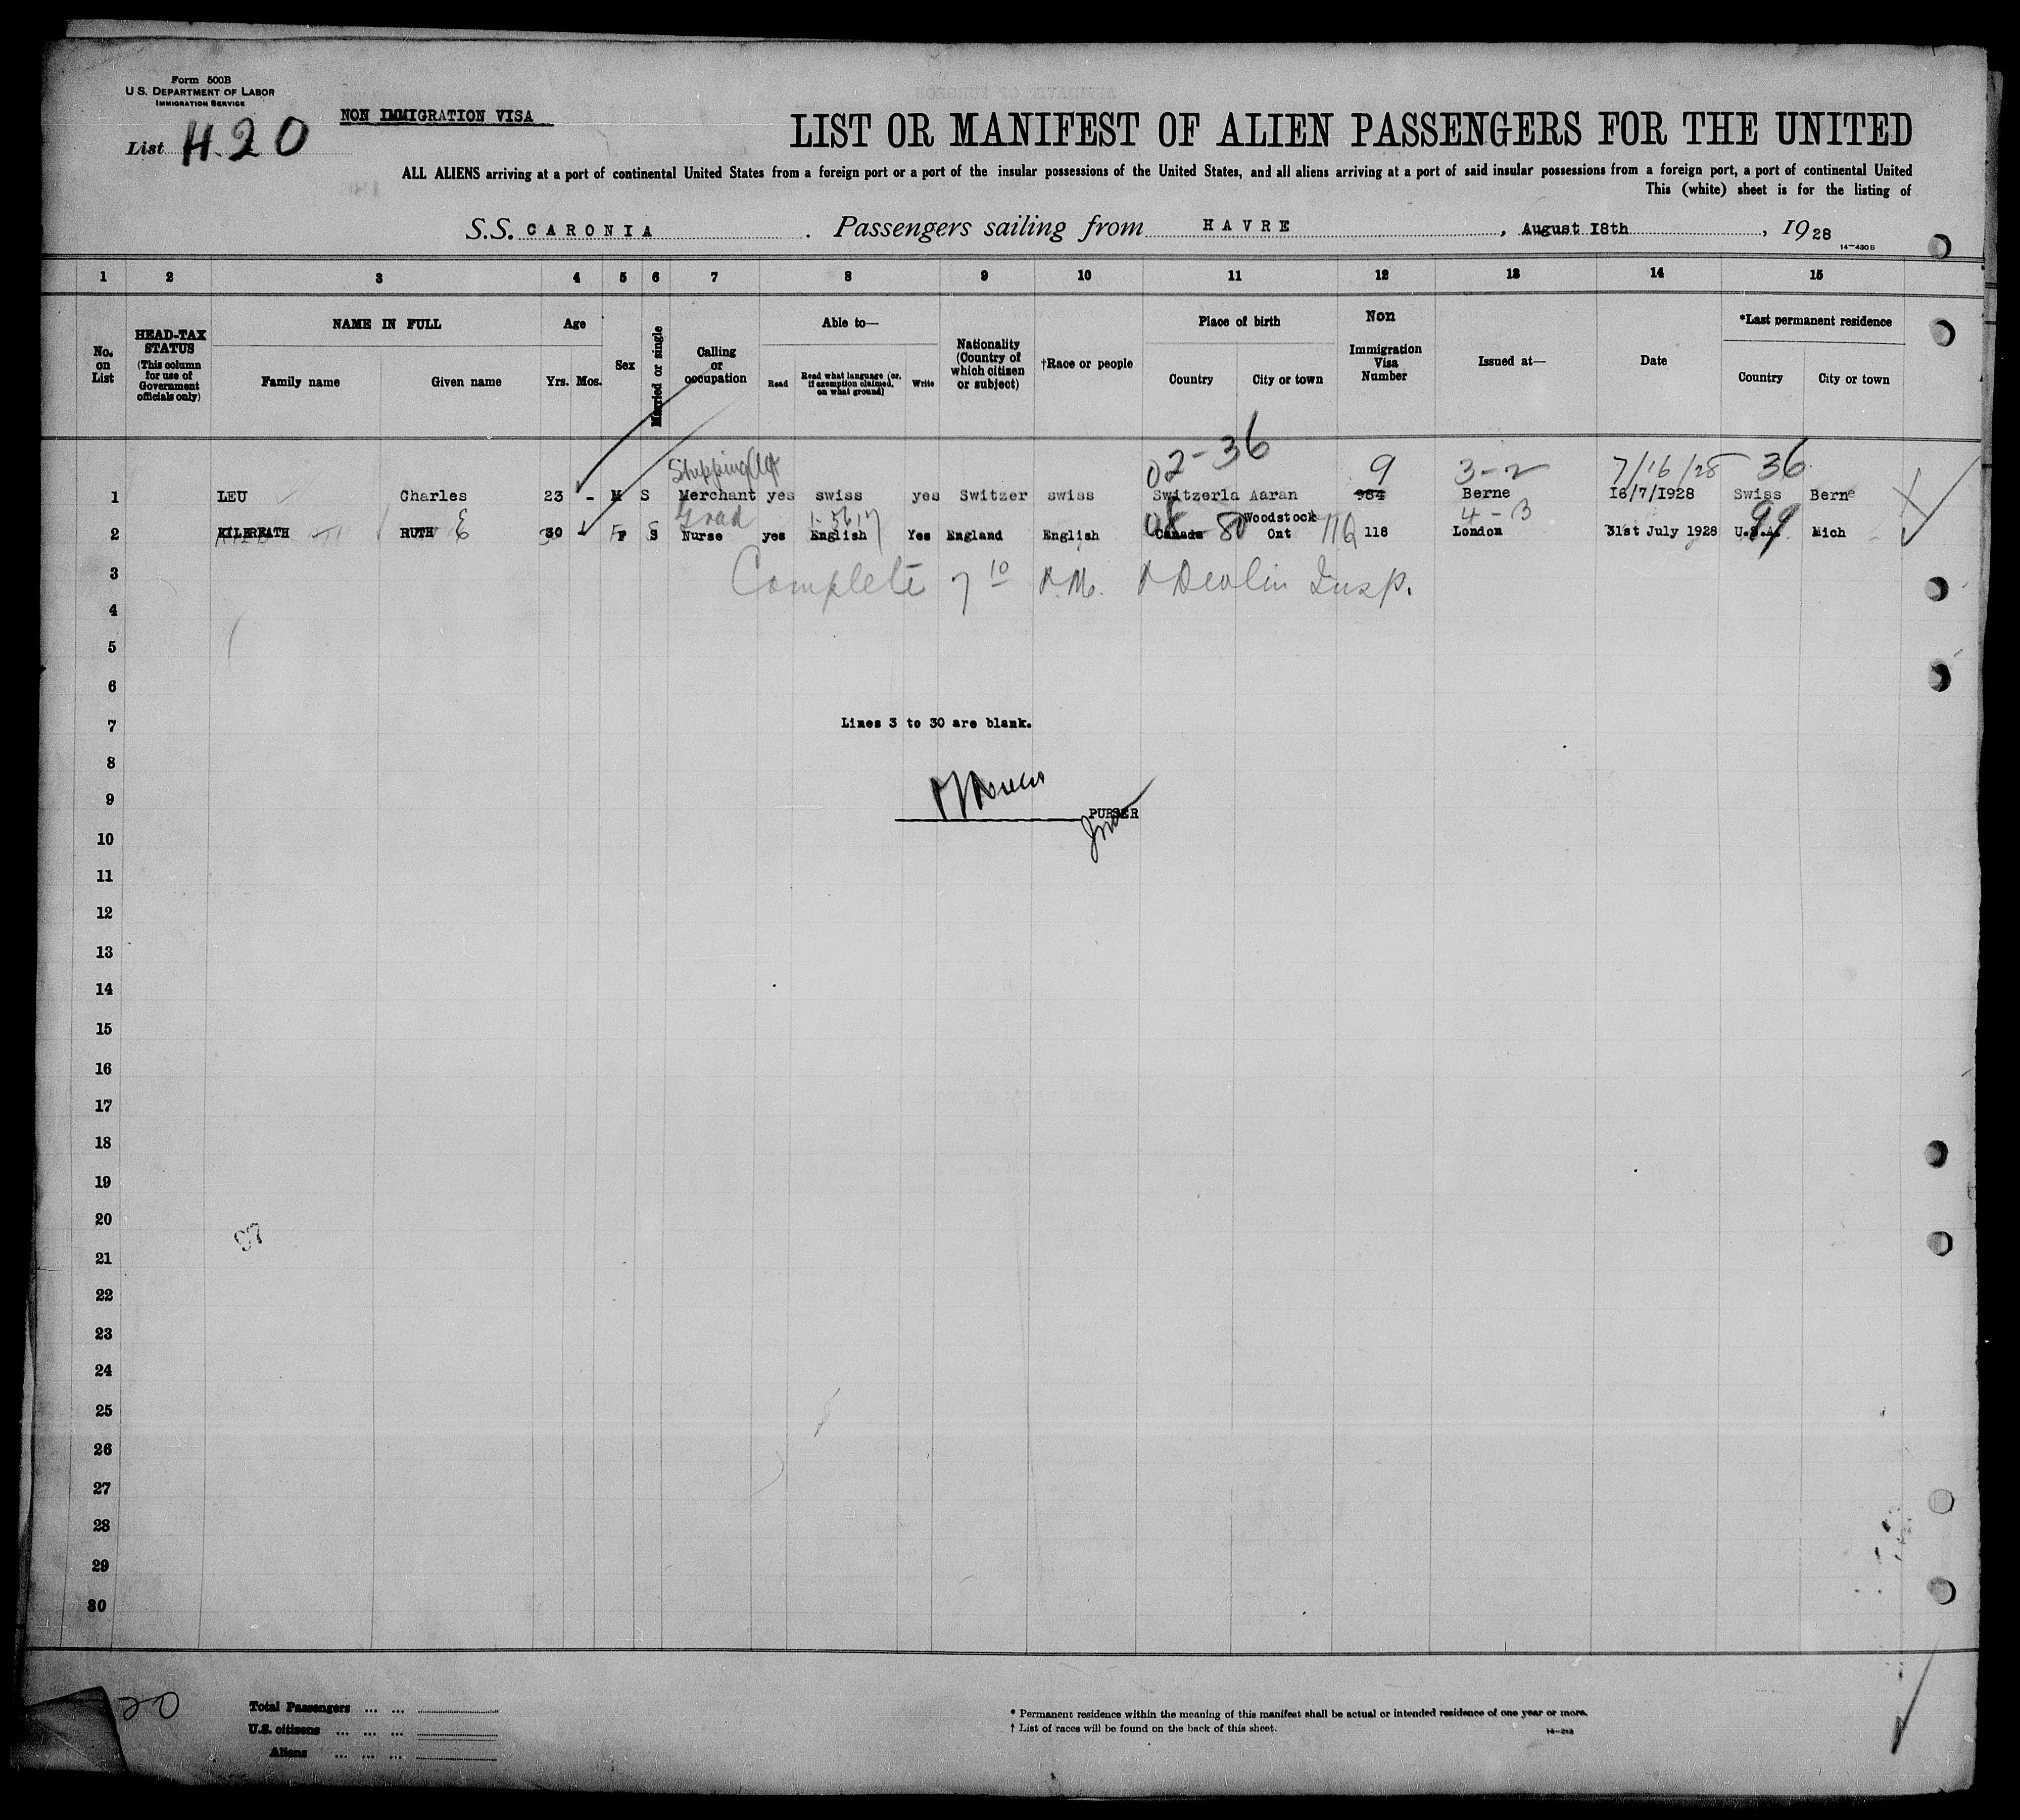 Form 500B
U.S. DEPARTMENT OF LABOR
IMMIGRATION SERVICE
NON IMMIGRATION VISA
List H.20
LIST OR MANIFEST OF ALIEN PASSENGERS FOR THE UNITED
ALL ALIENS arriving at a port of continental United States from a foreign port or a port of the insular possessions of the United States, and all aliens arriving at a port of said insular possessions from a foreign port, a port of continental United
This (white) sheet is for the listing of
S.S. CARONIA. Passengers sailing from HAVRE, August I8th, 1928
14-430B
1 2 3 4 5 6 7 8 9 10 11 12 13 14 15
No. on List
HEAD-TAX STATUS (This column for use of Government officials only)
NAME IN FULL
Family name Given name
Age
Yrs. Mos.
Sex
Married or single
Calling or occupation
Able to—
Read Read what language (or, if exemption claimed, on what ground) Write
Nationality (Country of which citizen or subject)
†Race or people
Place of birth
Country City or town
Non Immigration Visa Number
Issued at—
Date
*Last permanent residence
Country City or town
Shipping 02-36 9 3-2 7/16/28 36
1 LEU Charles 23 - M S Merchant yes swiss yes Switzer swiss Switzerla Aaran 984 Berne I6/7/I928 Swiss Berne
Grad Woodstock 4-3 99
2 RUTH E 30 F S Nurse yes English Yes England English Canada 80 Ont 118 London 31st July 1928 U.S.A. Mich
3 Complete 7 10 P.M. P Devlin Insp.
4
5
6
7 Lines 3 to 30 are blank.
8
9 PURSER
10
11
12
13
14
15
16
17
18
19
20
21
22
23
24
25
26
27
28
29
30
20
Total Passengers ... ...
U.S. citizens ... ... ...
Aliens ... ... ...
* Permanent residence within the meaning of this manifest shall be actual or intended residence of one year or more.
† List of races will be found on the back of this sheet.
14-213